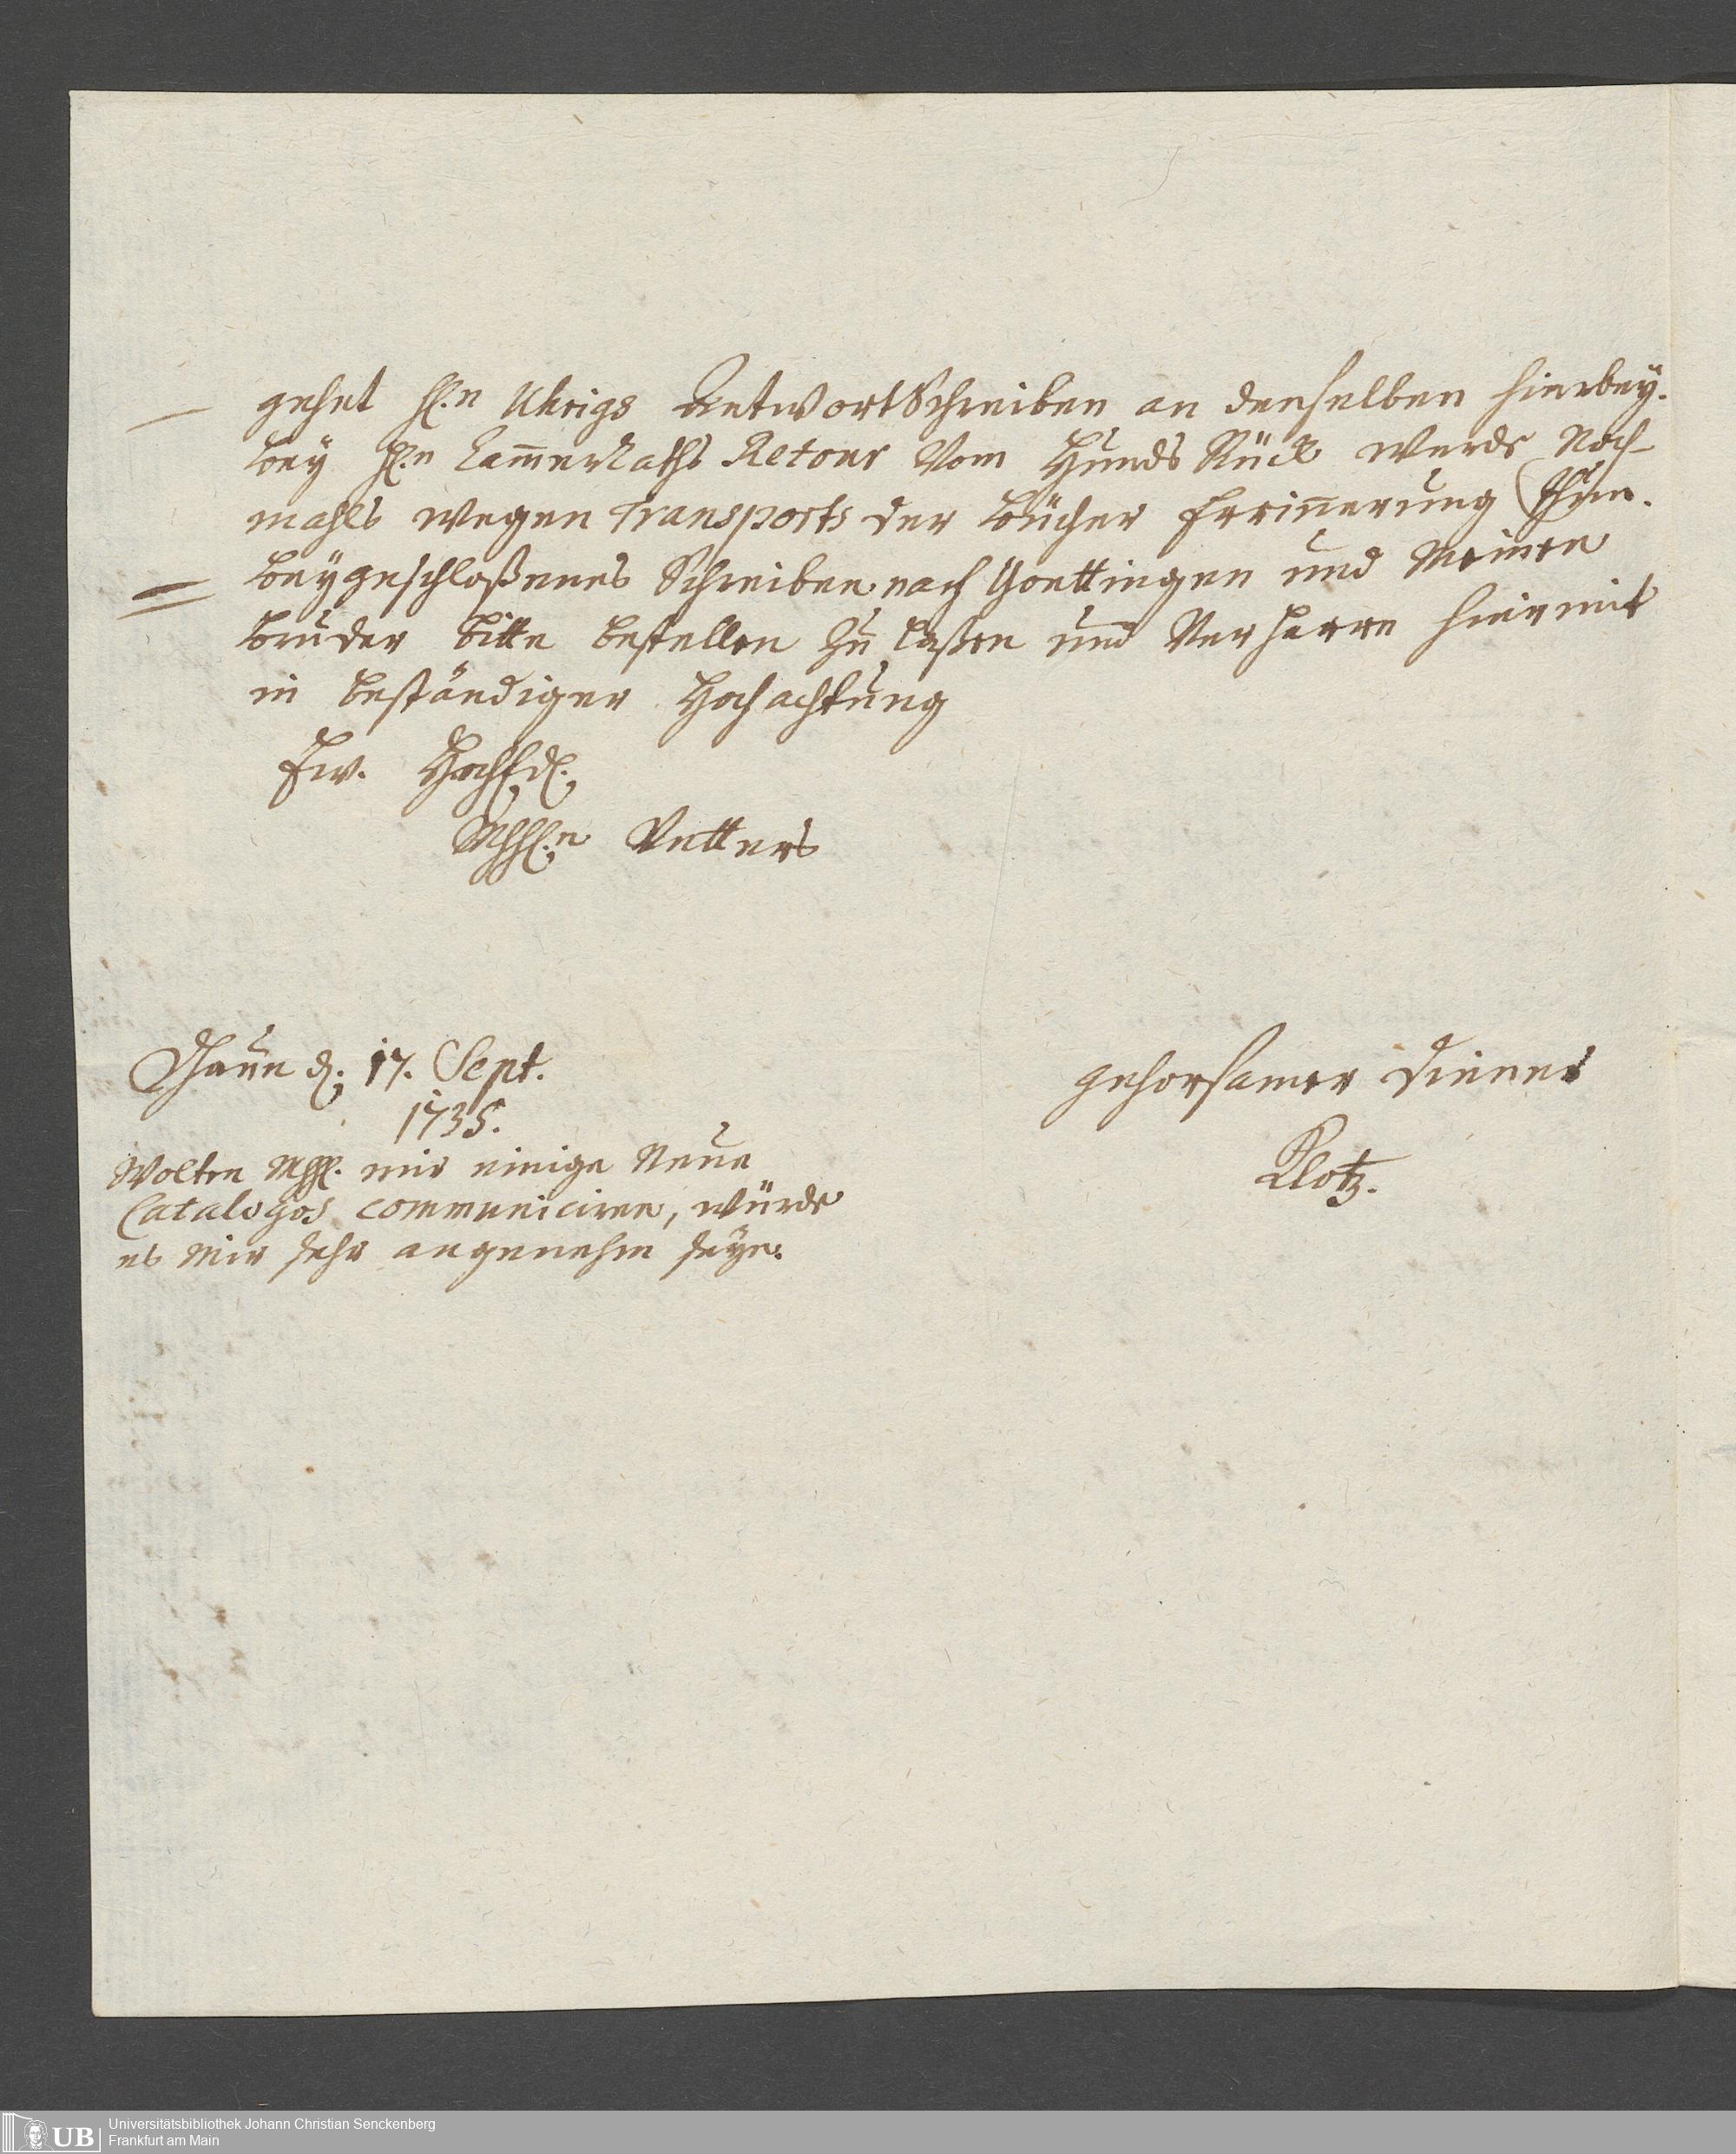 gehet H.n Uhrigs AntwortSchreiben an denselben hierbey.
bey H.n Cam̅erRaths Retour Vom HundsRück werde Noch-
mahls wegen Transports der bücher Errin̅erung thun.
beygeschloßenes Schreiben nach Goettingen und Meinen
bruder bitte bestellen zu laßen und Verharre hiermit
in beständiger Hochachtung
Ew. HochEd.
MhH.n Vetters
Dhaun d. 17. Sept.
1735.
gehorsamer Diener
Klotz.
Wolten MhH. mir einige Neue
Catalogos communiciren, würde
es Mir sehr angenehm seyn.
UB
Universitätsbibliothek Johann Christian Senckenberg
Frankfurt am Main